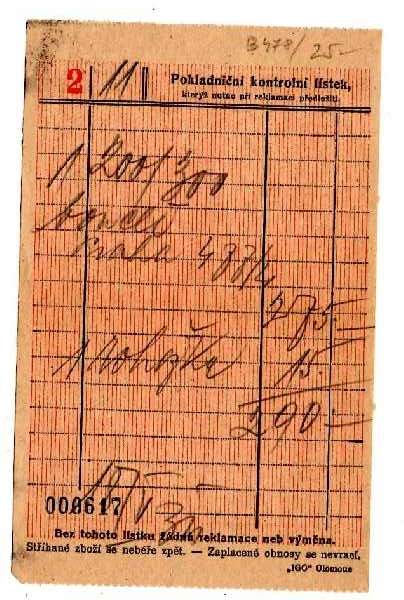 B 478/25-
2 11 Pokladniční kontrolní lístek,
kterýž nutno při reklamaci předložiti.
1 200/300
487/4
275.-
1 rohožka 15.-
290-
000617
Bez tohoto lístku žádná reklamace neb výměna.
Stříhané zboží se nebéře zpět. — Zaplacené obnosy se nevrací.
„IGO" Olomouc